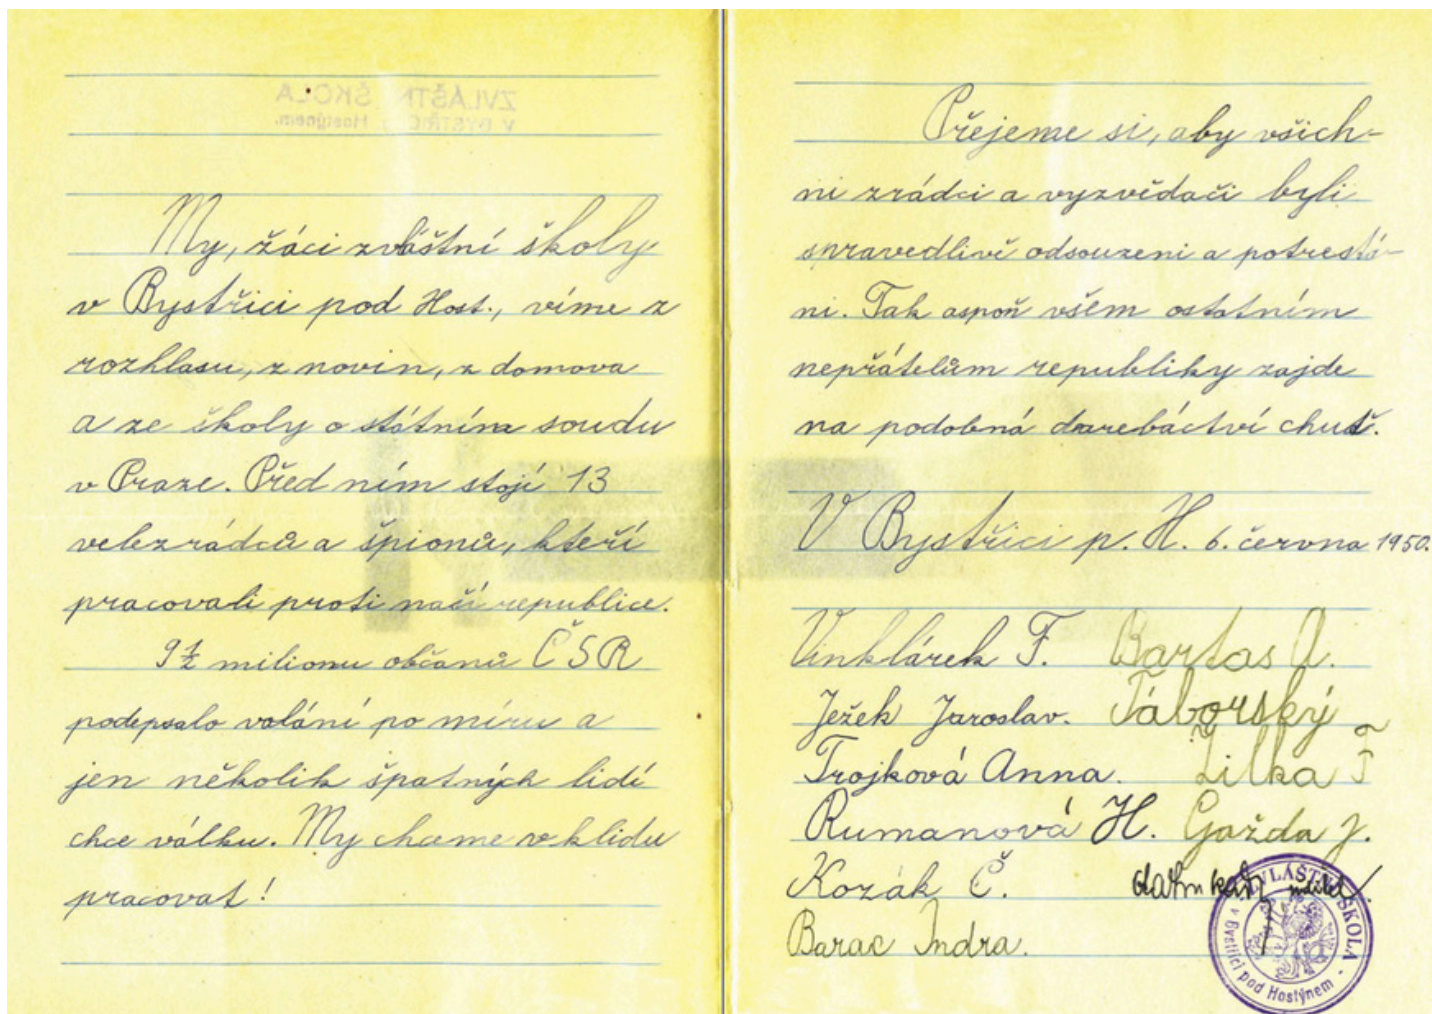 ZVLÁŠTNÍ ŠKOLA
V BYSTŘICI Hostýnem.
My, žáci zvláštní školy
v Bystřici pod Host., víme z
rozhlasu, z novin, z domova
a ze školy o státním soudu
v Praze. Před ním stojí 13
velezrádců a špionů, kteří
pracovali proti naší republice.
9½ milionu občanů ČSR
podepsalo volání po míru a
jen několik špatných lidí
chce válku. My chceme v klidu
pracovat!
Přejeme si, aby všich-
ni zrádci a vyzvědači byli
spravedlivě odsouzeni a potrestá-
ni. Tak aspoň všem ostatním
nepřátelům republiky zajde
na podobná darebáctví chuť.
V Bystřici p. H. 6. června 1950.
Vinklárek F. Bartas A.
Ježek Jaroslav. Táborský
Trojková Anna. Lilka F
Rumanová H. Gažda J.
Kozák Č.
Barac Indra.
ZVLÁŠTNÍ ŠKOLA
v Bystřici pod Hostýnem